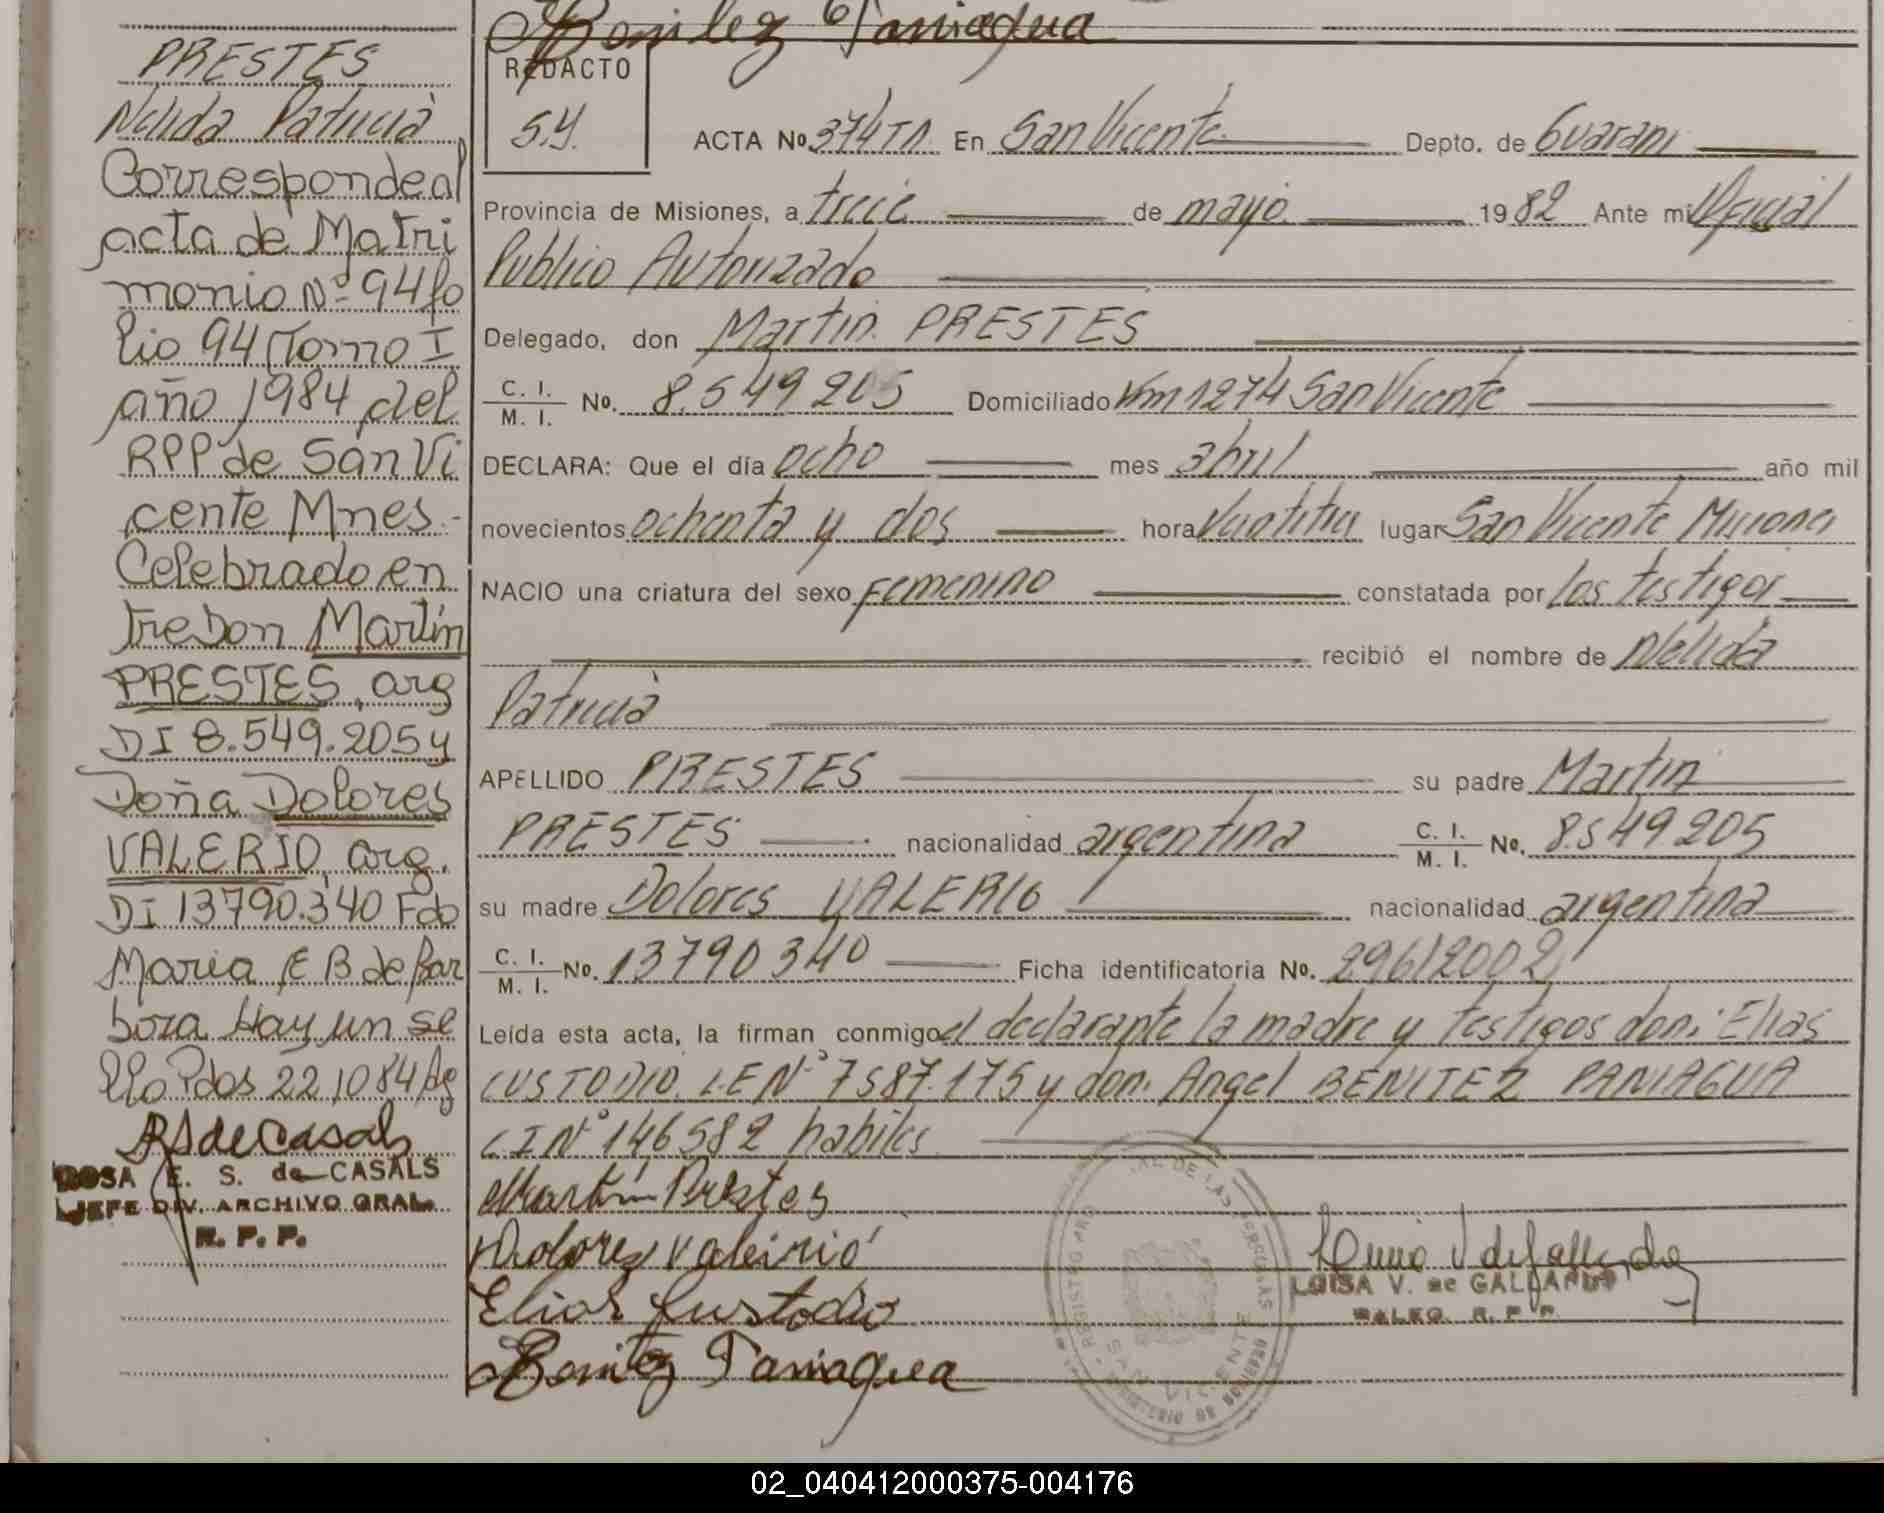 Benitez Paniagua
PRESTES
Nelida Patricia
Corresponde al
acta de Matri
monio Nº 94 fo
lio 94 Tomo I
año 1984 del
RPP de San Vi
cente Mnes.-
Celebrado en
tre Don Martín
PRESTES, arg
DI 8.549.205 y
Doña Dolores
VALERIO, arg.
DI 13790.340 Fdo
Maria E B de Bar
boza Hay un se
llo Pdas 22 10 84
RSdeCasals
ROSA E. S. de CASALS
JEFE DIV. ARCHIVO GRAL.
R. P. P.
REDACTO
S.Y.
ACTA No. 374 TI. En San Vicente Depto. de Guarani
Provincia de Misiones, a trece de mayo 1982 Ante mi Oficial
Publico Autorizado
Delegado, don Martin PRESTES
C. I. / M. I. No. 8.549 205 Domiciliado Km 1274 San Vicente
DECLARA: Que el día ocho mes abril año mil
novecientos ochenta y dos hora veintitres lugar San Vicente Misiones
NACIO una criatura del sexo Femenino constatada por los testigos
recibió el nombre de Nelida
Patricia
APELLIDO PRESTES su padre Martin
PRESTES nacionalidad argentina C. I. / M. I. No. 8.549 205
su madre Dolores VALERIO nacionalidad argentina
C. I. / M. I. No. 13790 340 Ficha identificatoria No. 296/2002
Leída esta acta, la firman conmigo el declarante la madre y testigos don: Elias
CUSTODIO. L.E Nº 7587.175 y don. Angel BENITEZ PANIAGUA
C I Nº 146582 habiles
Martín Prestes
Dolores Valeirio
Elias Custodio
Benitez Paniagua
LUISA V. de GALLARDO
R. P. P.
SAN VICENTE
02_040412000375-004176